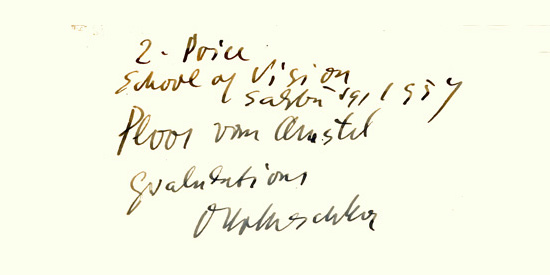 2 - Price
School of Vision
Salzburg, 1954
Ploos van Amstel
gratulations
OKokoschka